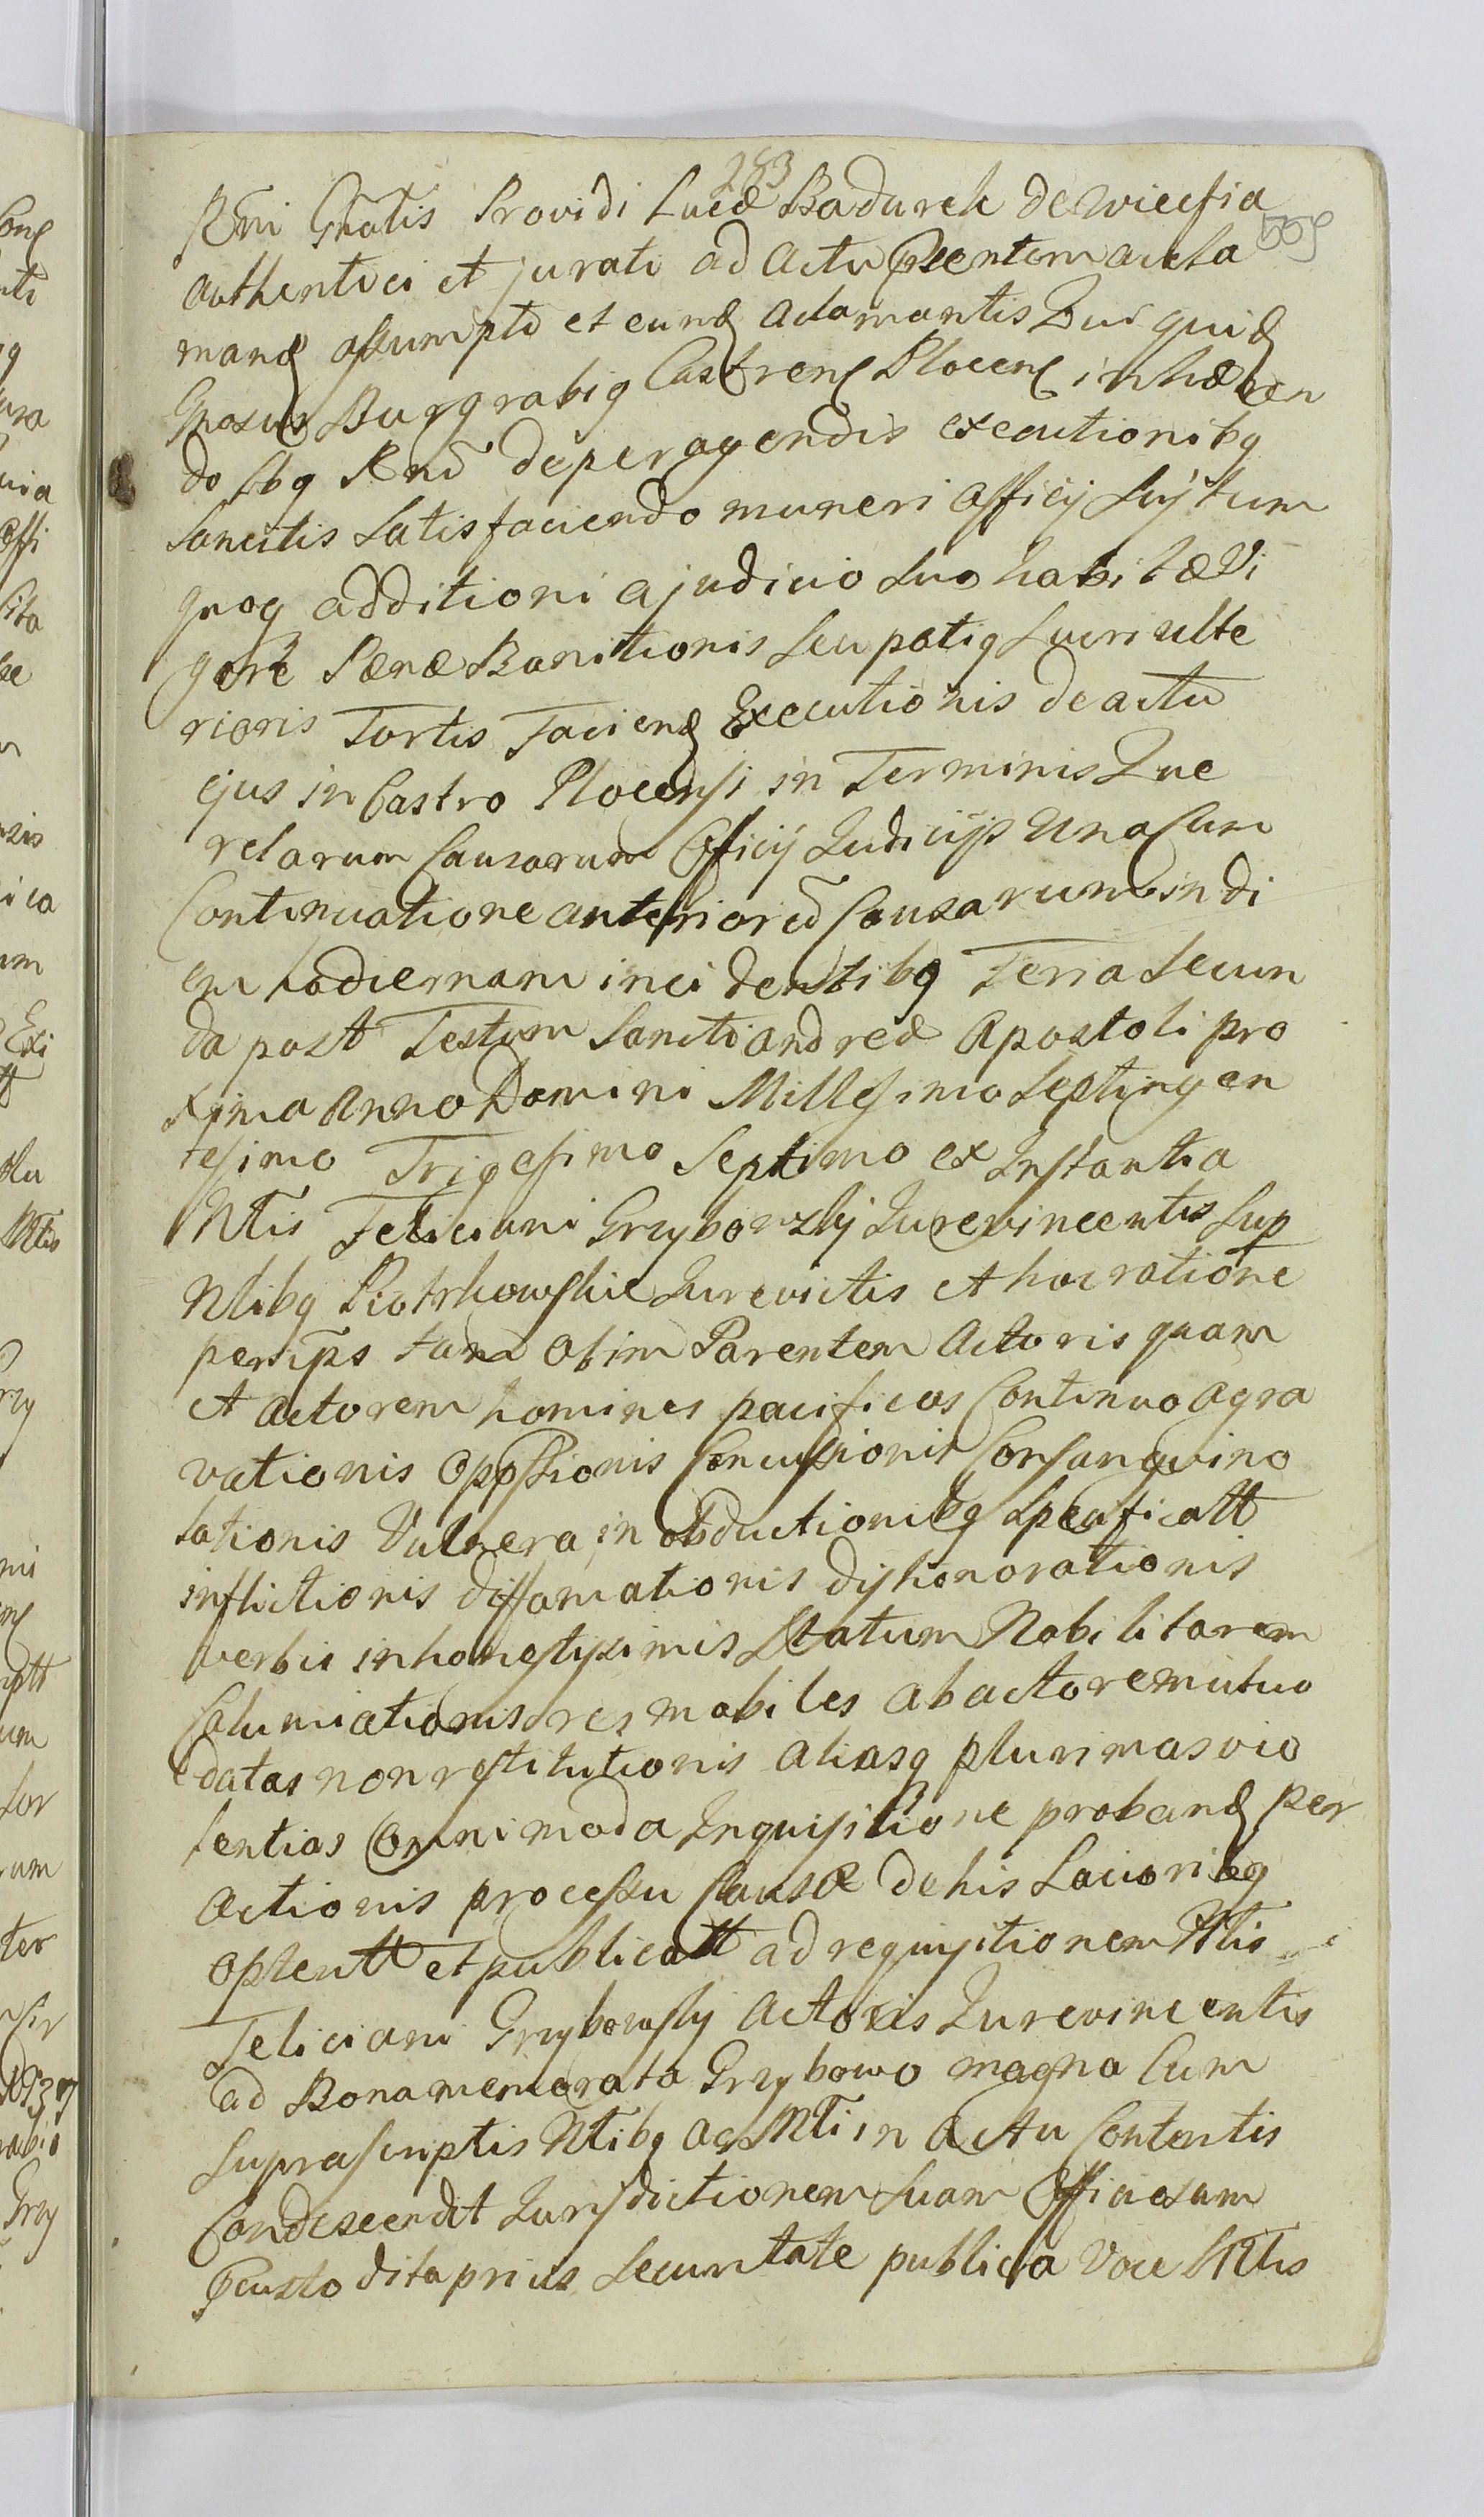 283
Rni Gnalis Providi Lucæ Badurek de Wiecfia
559
authentici et jurati ad actu præntem acta
mand assumpti et eund adamantis Qui quid
Gnosus Burgrabig Castrenę Plocenę inhæren
do Lbg Rni deperagendis executionibg
Sancitis Satisfaciendo muneri Officij Suij tum
quog additioni a judicio Suo habitæ Vi
gore Pænæ Banitionis Seu potig Lucri ulte
rioris Fortis Faciend Executionis de actu
ejus in Castro Plocensi in Terminis Que
relarum Causarum Officij Judicijs Una Cum
Continuatione anteriorū Causarum in di
em hodiernam incidentibg Feria Secun
da post Festum Sancti Andreæ Apostoli pro
xima Anno Domini Millesimo Septingen
tesimo Trigesimo Septimo ex Instantia
Ntis Feliciani Grzybowzkij Jurevincentis Sup
Ntibg Piotrkowskie Jurevictis et hac ratione
per ips tam Olim Parentem Actoris quam
et Actorem homines pacificos Continuo agra
vationis Oppssionis Concussionis Consangvino
lationis Vulnera in obductionibg Specificatt
inflictionis diffamationis dishonorationis
verbis inhonestissimis Statum Nobilitarem
Calumiationis res mobiles ab actore mutuo
datas non restitutionis aliasg plurimas vio
lentias Omnimoda Inquisitione proband per
actionis processu Causæ de his Lacioribg
optentt et publicatt ad requisitionem Ntis
Feliciani Grzybowskij Actoris Jurevincentis
ad Bona memorata Grzybowo magna Cum
Suprascriptis Ntibg ac Mti in Actu Contentis
Condescendit Jurisdictionem Suam Officiosam
Gcustodita prius Securitate publica Voce Mtis